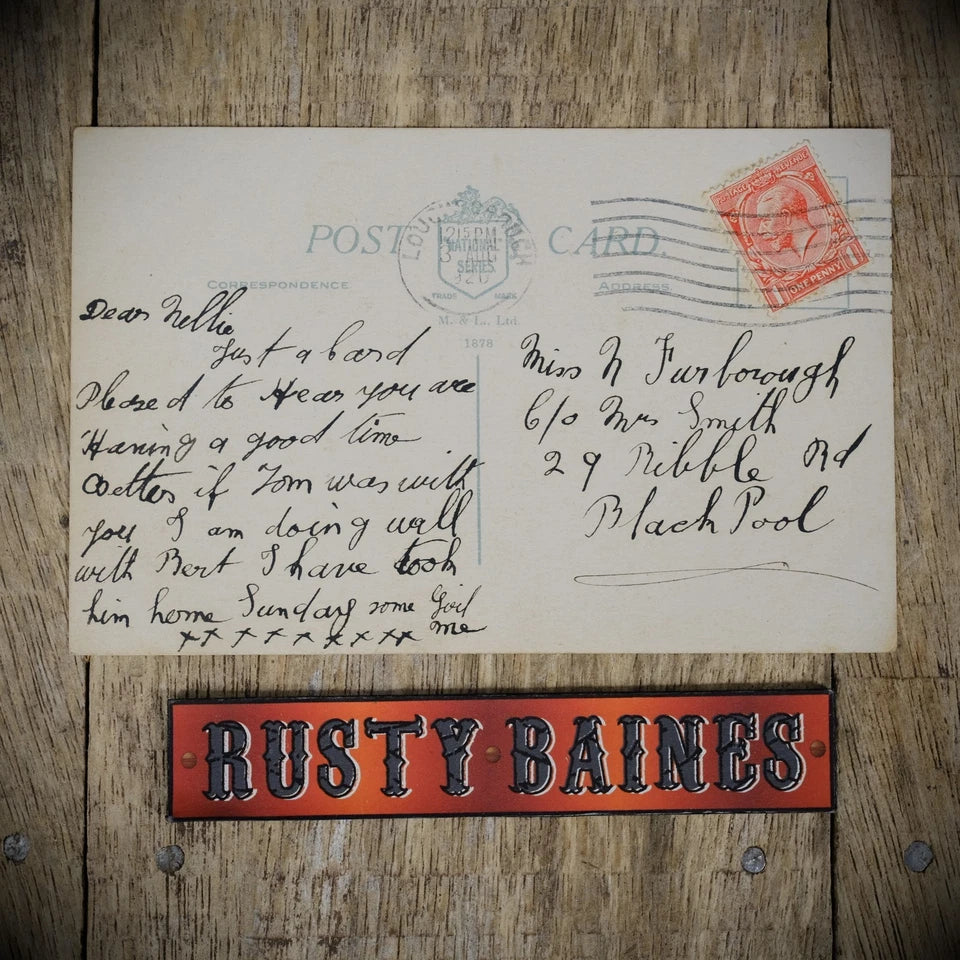 POST CARD.
CORRESPONDENCE
ADDRESS
2 15 PM
3 AUG
"NATIONAL"
SERIES
TRADE MARK
M. & L., Ltd.
1878
POSTAGE REVENUE
ONE PENNY
Dear Nellie
Just a Card
Pleased to Hear you are
Having a good time
better if Tom was with
you I am doing well
with Bert I have took
him home Sunday some Girl
me
xx x x x x x x xx
Miss N Furborough
C/o Mrs Smith
29 Ribble Rd
Black Pool
RUSTY BAINES